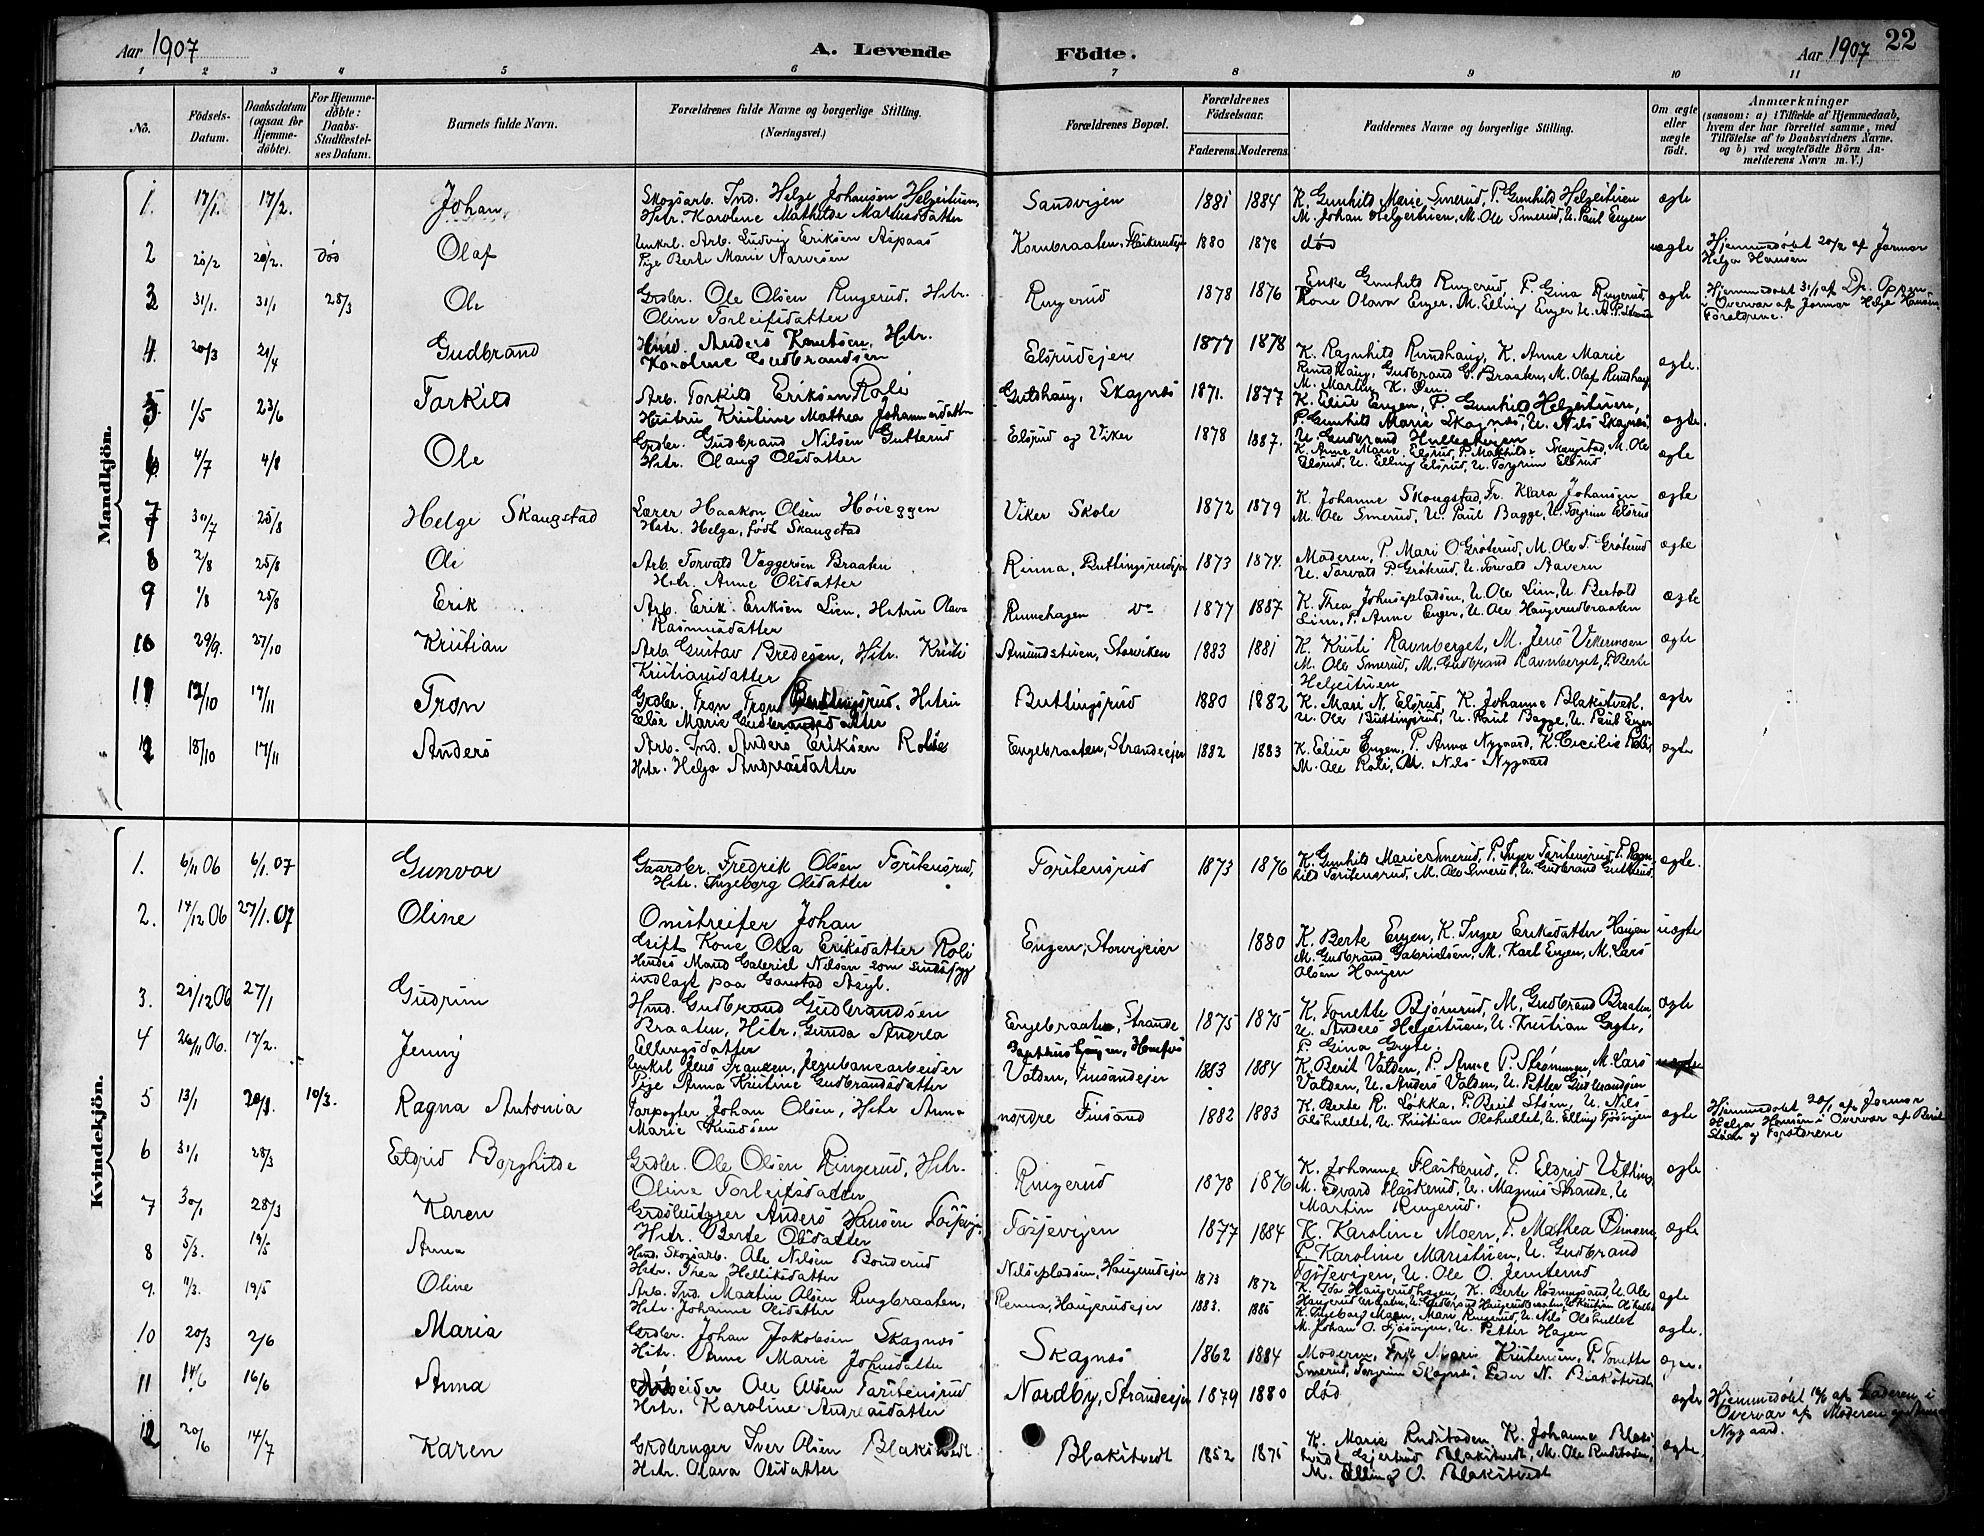 Aar 1907
A. Levende
Födte.
Aar 1907
22
1 2 3 4 5 6 7 8 9 10 11
No.
Födsels-
Datum.
Daabsdatum
(ogsaa for
Hjemme-
döbte).
For Hjemme-
döbte:
Daabs-
Stadfæstel-
ses Datum.
Barnets fulde Navn.
Forældrenes fulde Navne og borgerlige Stilling.
(Næringsvei.)
Forældrenes Bopæl.
Forældrenes
Födselsaar.
Faderens. Moderens.
Faddernes Navne og borgerlige Stilling.
Om ægte
eller
uægte
födt.
Anmærkninger
(saasom: a) i Tilfælde af Hjemmedaab,
hvem der har forrettet samme, med
Tilföielse af to Daabsvidners Navne,
og b) ved uægtefödte Börn An-
melderens Navn m. V.)
Mandkjön.
1. 17/1. 17/2. Johan
Skogsarb. Ind. Helge Johansen Helgeituen,
Hstr. Karoline Mathilde Mathisdatter
Sandvigen 1881 1884
K. Gunhild Marie Smerud, P. Gunhild Helgeituen
M. Johan Helgeituen, M. Ole Smerud, U. Paul Engen
ægte
2 20/2. død Olaf
Unkrl. Arb. Ludvig Eriksen Aspaas
Pige Berte Marie Narvesen
1880 1878 død uægte
Hjemmedøbt 20/2 af Jormor
Helga Hansen
3 31/1. 31/1 28/3 Ole
Grdbr. Ole Olsen Ringerud, Hstr.
Oline Torleifsdatter
Ringerud 1878 1876
Enke Gunhild Ringerud, P. Gina Ringerud,
Kone Olava Enger, M. Elling Enger
ægte
Hjemmedøbt 31/1 af Dr. Oppen
i Overvær af Jormor Helga Hansen,
Forældrene.
4. 20/3 21/4 Gudbrand
Anders Knutsen, Hstr.
Karoline Gudbrandsen
Elsrudejer 1877 1878
K. Ragnhild Rundhaug, K. Anne Marie
Rundhaug, Gudbrand G. Braaten, M. Olaf Rundhaug
M. Martin K. Øen.
ægte.
5 1/5 23/6 Torkild
Arb. Torkild Eriksen Roli
Hustru Kristine Mathea Johannesdatter
Guldhaug, Skagnæs 1871. 1877
K. Elise Engen, P. Gunhild Helgeituen,
P. Gunhild Marie Skagnæs, U. Nils Skagnæs,
U. Gudbrand
ægte.
6 4/7 4/8 Ole
Grdbr. Gudbrand Nilsen Gutterud
Hstr. Olaug Olsdatter
Elsrud og Viker 1878 1887.
K. Anne Marie Elsrud, P. Mathilde Skaugstad, M. Ole
Elsrud, U. Elling Elsrud, U. Torgrim Elsrud
ægte
7 30/7 25/8 Helge Skaugstad
Lærer Haakon Olsen Høieggen
Hstr. Helga, født Skaugstad
Viker Skole 1872 1879
K. Johanne Skougstad, Fr. Klara Johansen
M. Ole Smerud, U. Paul Bagge, U. Torgrim Elsrud
ægte
8 2/8 25/8 Ole
Arb. Torvald Vaggersen Braaten
Hstr. Anne Olsdatter
Rinna, Buttingsrudejer 1873 1874.
Moderen, P. Mari O. Grøterud, M. Ole T. Grøterud
U. Torvald P. Grøterud, U. Torvald Aavern
ægte
9 1/8 25/8 Erik
Arb. Erik Eriksen Lien, Hstru Olava
Rasmusdatter
Rinnehagen 1877 1887
K. Thea Johnsepladsen, U. Ole Lien, U. Bertold
Lien, P. Anne Enger, U. Ole Haugerudbraaten
ægte
10 29/9. 27/10 Kristian
Arb. Gustav Bredesen, Hstr. Kristi
Kristiansdatter
Amundstuen, Storviken 1883 1881
K. Kristi Ravnberget, M. Jens Vikermoen
M. Ole Smerud, M. Gudbrand Ravnberget, P. Berte
Helgeituen
ægte
11 12/10 17/11 Tron
Grdbr. Tron Tronsen Buttingsrud, Hstru
Else Marie Gudbrandsdatter
Buttingsrud 1880 1882
K. Mari N. Elsrud, K. Johanne Blakstvedt,
U. Ole Buttingsrud, U. Paul Bagge, U. Paul Engen
ægte
12 18/10 17/11 Anders
Arb. Ind. Anders Eriksen Rolie
Hstr. Helga Andreasdatter
Engebraaten, Strandeejer 1882 1883
K. Elise Engen, P. Anna Nygaard, K. Cecilie Roli,
M. Ole Roli, M. Nils Nygaard
ægte
Kvindekjön.
1. 6/11 06 6/1. 07 Gunvor
Gaardbr. Fredrik Olsen Toritensrud,
Hstr. Ingeborg Olsdatter
Toritensrud 1873 1876
K. Gunhild Marie Smerud, P. Inger Toritensrud, P. Ragn-
hild Toritensrud, M. Ole Smerud, U. Gudbrand Gutterud
ægte.
2. 14/12 06 27/1. 07 Oline
Omstreifer Johan
Gift Kone Olea Eriksdatter Roli
Hendes Mand Gabriel Nilsen som sindssyg
indlagt paa Gaustad Asyl.
Engen, Storvejeier 1880
K. Berte Engen, K. Inger Eriksdatter Haugen
M. Gudbrand Gabrielsen, M. Karl Engen, M. Lars
Olsen Haugen
uægte
3. 21/12 06 27/1 Gudrun
Hmd. Gudbrand Gudbrandsen
Braaten, Hstr. Gunda Andrea
Ellingsdatter
Engebraaten, Strande 1875 1875
K. Tonette Bjørnerud, M. Gudbrand Braaten,
U. Anders Helgeituen, U. Kristian Gryte,
P. Gina Gryte.
ægte
4 26/11 06. 17/2. Jenny
Unkrl. Jens Franzen, Jernbanearbeider
Pige Anna Kristine Gudbrandsdatter
Hønefos
Valden, Finsandejer 1883 1884
K. Berit Valden, P. Anne P. Strømmen, M. Lars
Valden, U. Anders Valden, U. Petter Gudbrandsen
uægte
5 13/1 10/3. Ragna Antonia
Johan Olsen, Hstr Anna
Marie Knudsen
nordre Finsand 1882 1883
K. Berte R. Løkka, P. Berit Støen, U. Nils
Olshullet, U. Kristian Olshullet, U. Elling Tjøsvigen
ægte
Hjemmedøbt 20/1 af Jormor
Helga Hansen i Overvær af Berit
Støen og Forældrene
6 31/1 28/3 Eldrid Borghilde
Grdbr. Ole Olsen Ringerud, Hstr.
Oline Torleifsdatter
Ringerud 1878 1876
K. Johanne Flaskerud, P. Eldrid Vetting
M. Edvard Flaskerud, U. Magnus Strande, U.
Martin Ringerud.
ægte
7 30/1 28/3 Karen
Anders Hansen
Hstr. Berte Olsdatter
1877 1884
K. Karoline Moen, P. Mathea Simensen
P. Karoline Maristuen, U. Gudbrand
U. Ole O. Jemterud
ægte
8 5/3. 19/5 Anna
Hmd. Skogsarb. Ole Nilsen Bonderud
Hstr. Thea Helliksdatter
Nilsepladsen, Haugerudejer 1873 1872
K. Ida Haugerudhagen, K. Berte Rosmysand, U. Ole
ægte
9. 11/3. 19/5 Oline
Arb. Ind. Martin Olsen Ringbraaten,
Hstr. Johanne Olsdatter
Renna, Haugerudejer 1883. 1885
K. Ingeborg Moen, Mari Ringerud, U. Nils Olshullet
M. Johan O. Tjøsvigen, U. Petter Hagen
ægte.
10 20/3 2/6 Maria
Grdbr. Johan Jakobsen Skagnæs
Hstr. Anne Marie Johnsdatter
Skagnæs 1862 1884
Moderen, Frk Marie Kristensen, P. Tonette
Smerud, Torgrim Skagnæs, Peder N. Blakstvedt
ægte.
11 14/6 16/6 Anna
Arbeider Ole Olsen Toritensrud
Hstr. Karoline Andreasdatter
Nordby, Strandeejer 1879 1880 død
ægte
Hjemmedøbt 16/6 af Faderen i
Overvær af Moderen og
Nygaard.
12 20/6 14/7 Karen
Grdbruger Iver Olsen Blakstvedt
Hstr. Olava Olsdatter
Blakstvedt 1852 1875
K. Marie Rudstaden, K. Johanne Blaks-
tvedt, Gjertrud Blakstvedt, M. Ole Rudstaden,
M. Elling O. Blakstvedt
ægte.